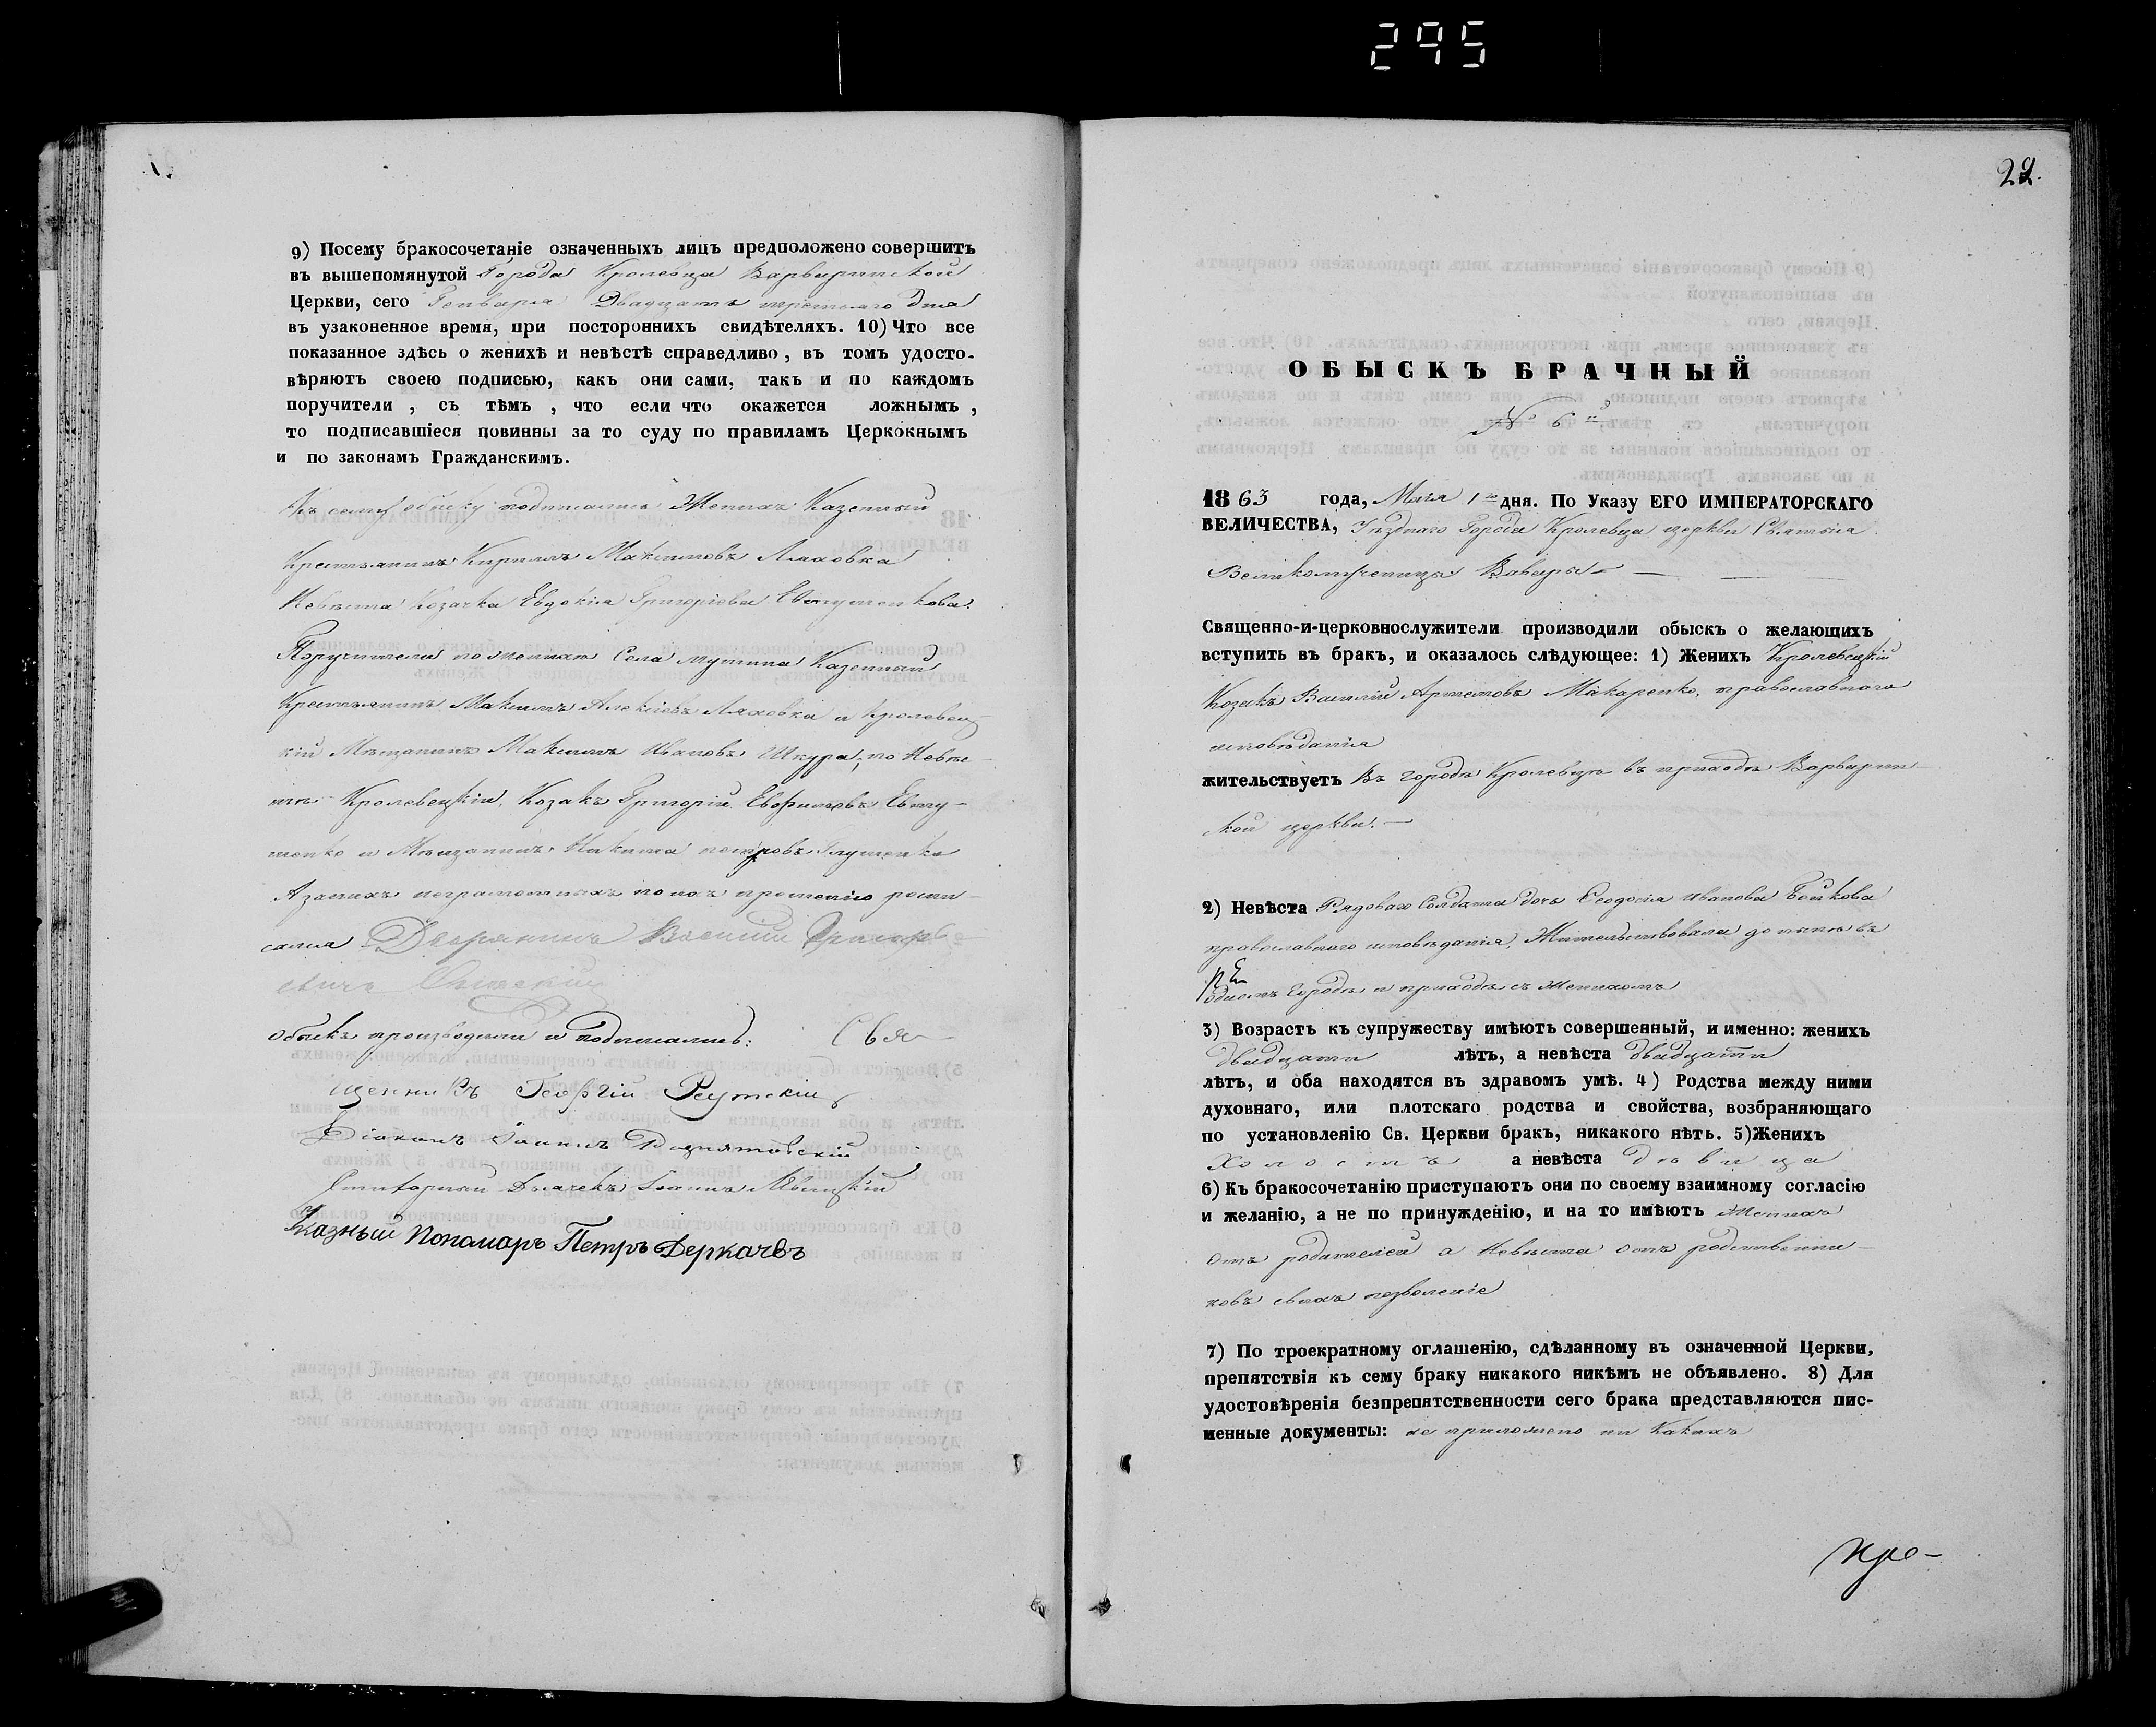 295
9) Посему бракосочетаніе означенныхъ лицъ предположено совершить
въ вышепомянутой Города Кролевца Варваринской
Церкви, сего Генваря Двадцать третьяго дня
въ узаконенное время, при постороннихъ свидѣтеляхъ. 10) Что все
показанное здѣсь о женихѣ и невѣстѣ справедливо, въ томъ удосто-
вѣряютъ своею подписью, какъ они сами, такъ и по каждомъ
поручители, съ тѣмъ, что если что окажется ложнымъ,
то подписавшіеся повинны за то суду по правиламъ Церкокнымъ
и по законамъ Гражданскимъ.
Къ сему обыску подписались Женихъ Казенный
Крестьянинъ Кириллъ Максимовъ Ляховка
Невѣста Козачка Евдокія Григоріева Евтушенкова.
Поручители по женихѣ Села Мутина Казенный
Крестьянинъ Максимъ Алексіевъ Ляховка и Кролевец-
кій Мѣщанинъ Максимъ Ивановъ Шкура, по Невѣс-
тѣ Кролевецкій Козакъ Григорій Евфимовъ Евту-
шенко и Мѣщанинъ Никита петровъ Глушенко
А за нихъ неграмотныхъ по ихъ прошенію роспи-
сался Дворянинъ Василій Григорь
евичъ
обыскъ производили и подписались: Свя-
щенникъ Георгій Реутскій
Діаконъ Іоаннъ
Дьячекъ Іоаннъ Левицкій
Указный Пономарь Петръ Деркачевъ
22.
ОБЫСКЪ БРАЧНЫЙ
№ 6й
1863 года, Мая 1го дня. По Указу ЕГО ИМПЕРАТОРСКАГО
ВЕЛИЧЕСТВА, Уѣзднаго Города Кролевца церкви Святыя
Великомученицы Вавары
Священно-и-церковнослужители производили обыскъ о желающихъ
вступить въ бракъ, и оказалось слѣдующее: 1) Женихъ Кролевецкій
Козакъ Василій Артемовъ Макаренко, православнаго
исповѣданія
жительствуетъ Въ городѣ Кролевцѣ въ приходѣ Варварин-
ской церкви.
2) Невѣста Рядоваго Солдата дочь Ѳеодосія Иванова Бойкова
православнаго исповѣданія, Жительствовала до нынѣ въ
одномъ Городѣ и приходѣ съ Женихомъ
3) Возрастъ къ супружеству имѣютъ совершенный, и именно: женихъ
двадцати лѣтъ, а невѣста двадцати
лѣтъ, и оба находятся въ здравомъ умѣ. 4) Родства между ними
духовнаго, или плотскаго родства и свойства, возбраняющаго
по установленію Св. Церкви бракъ, никакого нѣтъ. 5) Женихъ
Холостъ а невѣста дѣвица
6) Къ бракосочетанію приступаютъ они по своему взаимному согласію
и желанію, а не по принужденію, и на то имѣютъ Женихъ
отъ родителей а Невѣста отъ родственни-
ковъ своихъ позволеніе
7) По троекратному оглашенію, сдѣланному въ означенной Церкви,
препятствія къ сему браку никакого никѣмъ не объявлено. 8) Для
удостовѣренія безпрепятственности сего брака представляются пис-
менные документы: не приложено ни какихъ